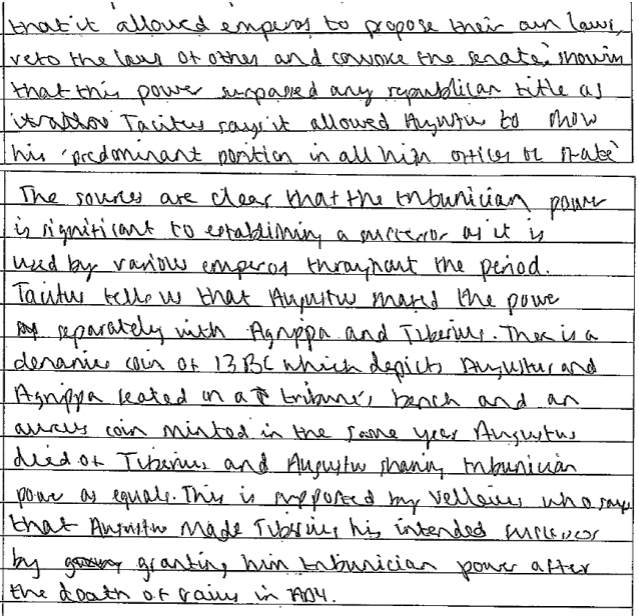 that it allowed emperos to propose their own laws,
veto the laws of others and convoke the senate, showin
that this power surpassed any republican title as
Tacitus says it allowed Augustus to show
his 'predominant position in all high offices of state'
The sources are clear that the tribunician power
is significant to establishing a successor as it is
used by various emperos throughout the period.
Tacitus tells us that Augustus shared the power
separately with Agrippa and Tiberius. There is a
denarius coin of 13 BC which depicts Augustus and
Agrippa seated on a tribune's bench and an
aureus coin minted in the same year Augustus
died of Tiberius and Augustus sharing tribunician
power as equals. This is supported by Velleius who says
that Augustus made Tiberius his intended successor
by granting him tribunician power after
the death of Gaius in AD4.